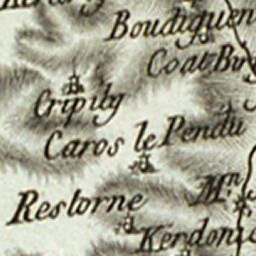 Boudiguen
Coat Bi
Cripily
Caros le Pendu
Mⁿ
Restorne
Kerdoni